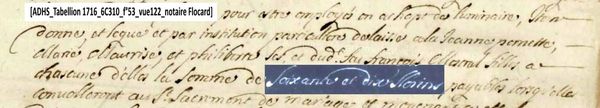 [ADHS_Tabellion 1716_6C310_f°53_vue122_notaire Flocard]
pour estre employé en achept de luminaire, Item
donne, et legue et par institution particuliere delaisse a la Jeanne pernette,
Claire, Maurise, et philiberte ses et dud. feu françois filles, a
chascune delles la somme de Soixante et dix florins payables lors quelles
convolleront au St. Sacrement de mariage et moyennant